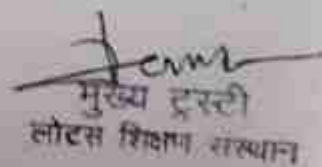 मुख्य ट्रस्टी
लोटस शिक्षण संस्थान